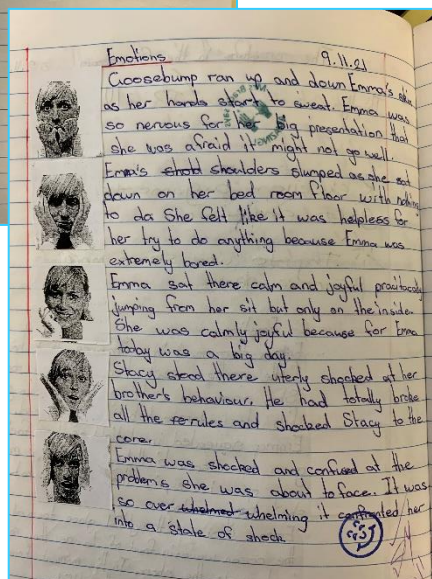 Emotions 9.11.21
Goosebump ran up and down Emma's skin
as her hands start to sweat. Emma was
so nervous for her big presentation that
she was afraid it might not go well.
Emma's shold shoulders slumped as she sat
down on her bed room floor with nothing
to do She felt like it was helpless for
her try to do anything because Emma was
extremely bored.
Emma sat there calm and joyful
jumping from her sit but only on the inside.
She was calmly joyful because for Emma
today was a big day.
Stacy stood there uterly shocked at her
brother's behaviour. He had totally broke
all the rules and shocked Stacy to the
core.
Emma was shocked and confused at the
problems she was about to face. It was
so over whelmed whelming it confronted her
into a state of shock.